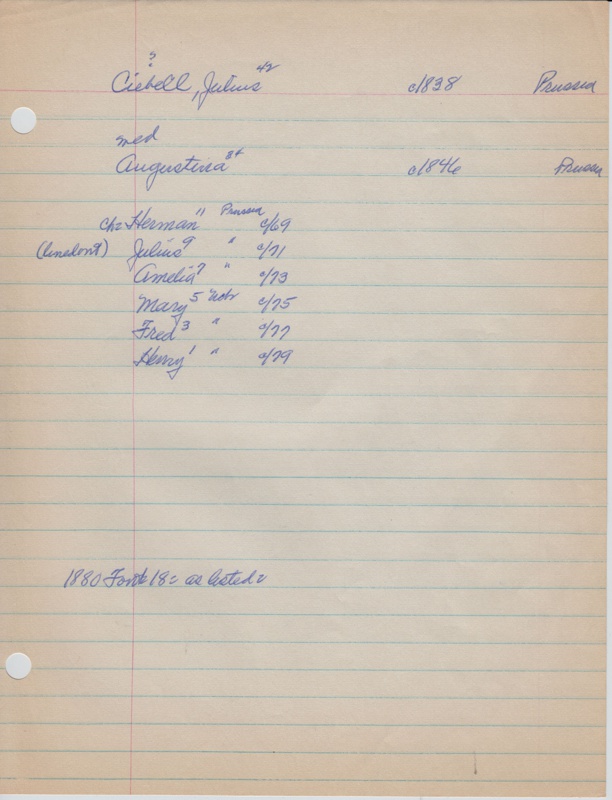 ?
Ciebell, Julius 42 c/1838 Prussia
med
Augustina 34 c/1846 Prussia
Ch= Herman 11 Prussia c/69
Julius 9 " c/71
Amelia 7 " c/73
Mary 5 Nebr c/75
Fred 3 " c/77
Henry 1 " c/79
1880 18= as listed=